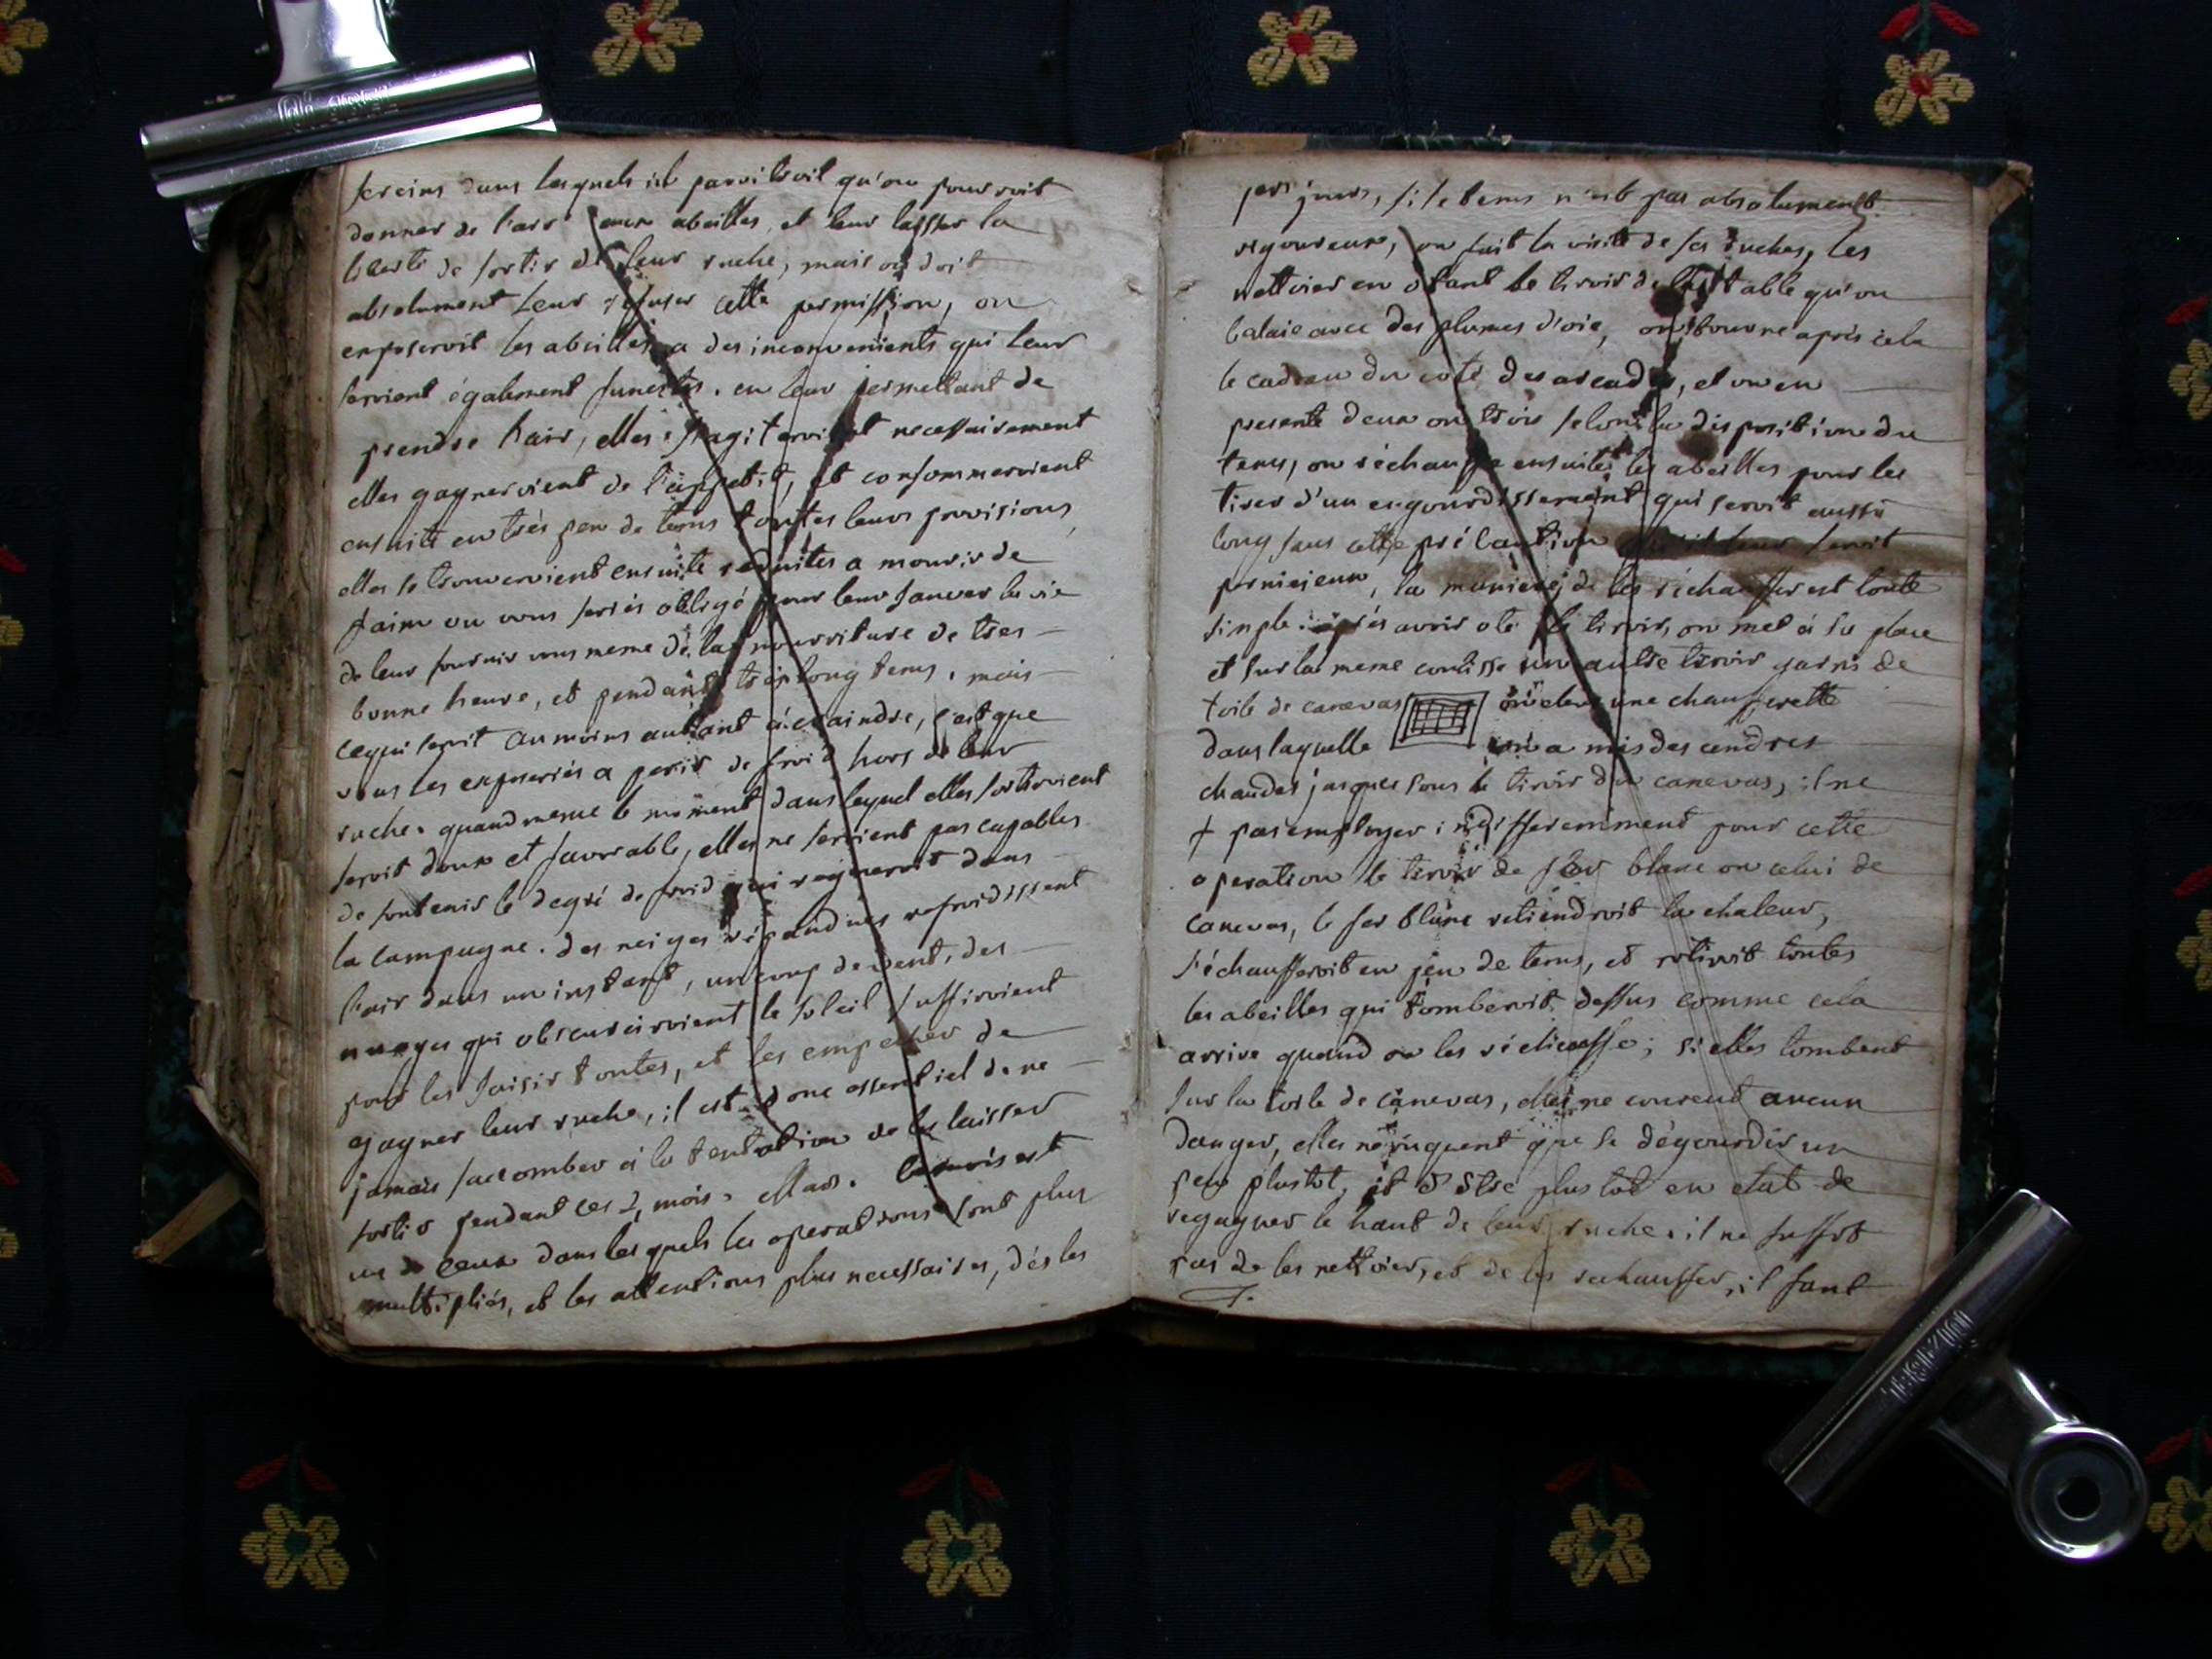 sereins dans lesquels il paroitroit qu'on pourroit
donner de l'air aux abeilles, et leur laisser la
liberté de sortir de leur ruche, mais on doit
absolument leur refuser cette permission, on
exposeroit les abeilles a des inconvenients qui leur
seroient également funestes. en leur permettant de
prendre l'air, elles s'agiteroient necessairement
elles gagneroient de l'appetit, et consommeroient
ensuite en très peu de tems toutes leurs provisions,
elles se trouveroient ensuite reduites a mourir de
faim ou vous seriés obligé pour leur sauver la vie
de leur fournir vous meme de la nourriture de tres
bonne heure, et pendant très long tems. mais
ce qui seroit au moins autant à craindre, c'est que
vous les exposeriés a perir de froid hors de leur
ruche. quand meme le moment dans lequel elles sortiroient
seroit doux et favorable, elles ne seroient pas capables
de soutenir le degré de froid qui régneroit dans
la campagne. des neiges répandues refroidissent
l'air dans un instant, un coup de vent, des
nuages qui obscurciroient le soleil suffiroient
pour les saisir toutes, et les empecher de
gagner leur ruche, il est donc essentiel de ne
jamais succomber à la tentation de les laisser
sortir pendant ces 2, mois. Mars. est
un de ceux dans lesquels les operations sont plus
multipliés, et les attentions plus necessaires, dès les
jours, si le tems n'est pas absolument
rigoureux, on fait la visite de ses ruches, les
nettoier en otant le tiroir de la table qu'on
balaie avec des plumes d'oie, on tourne après cela
le cadran du coté des arcades, et on en
presente deux ou trois selon la disposition du
tems, on réchauffe ensuite les abeilles pour les
tirer d'un engourdissement qui seroit aussi
long sans cette précaution leur seroit
pernicieux, la maniere de les réchauffer est toute
simple. après avoir oté le tiroir, on met à sa place
et sur la meme coulisse un autre tiroir garni de
toile de canevas une chaufferette
dans laquelle on a mis des cendres
chaudes jusques sous le tiroir du canevas, il ne
+ pas employer indifferemment pour cette
operation le tiroir de fer blanc ou celui de
canevas, le fer blanc retiendroit la chaleur,
s'échaufferoit en peu de tems, et rotiroit toutes
les abeilles qui tomberoit dessus comme cela
arrive quand on les réchauffe; si elles tombent
sur la toile de canevas, elles ne courent aucun
danger, elles ne risquent que se dégourdir un
peu plustot, et d'etre plus tot en etat de
regagner le haut de leur ruche. il ne suffit
pas de les nettoier, et de les rechauffer, il faut